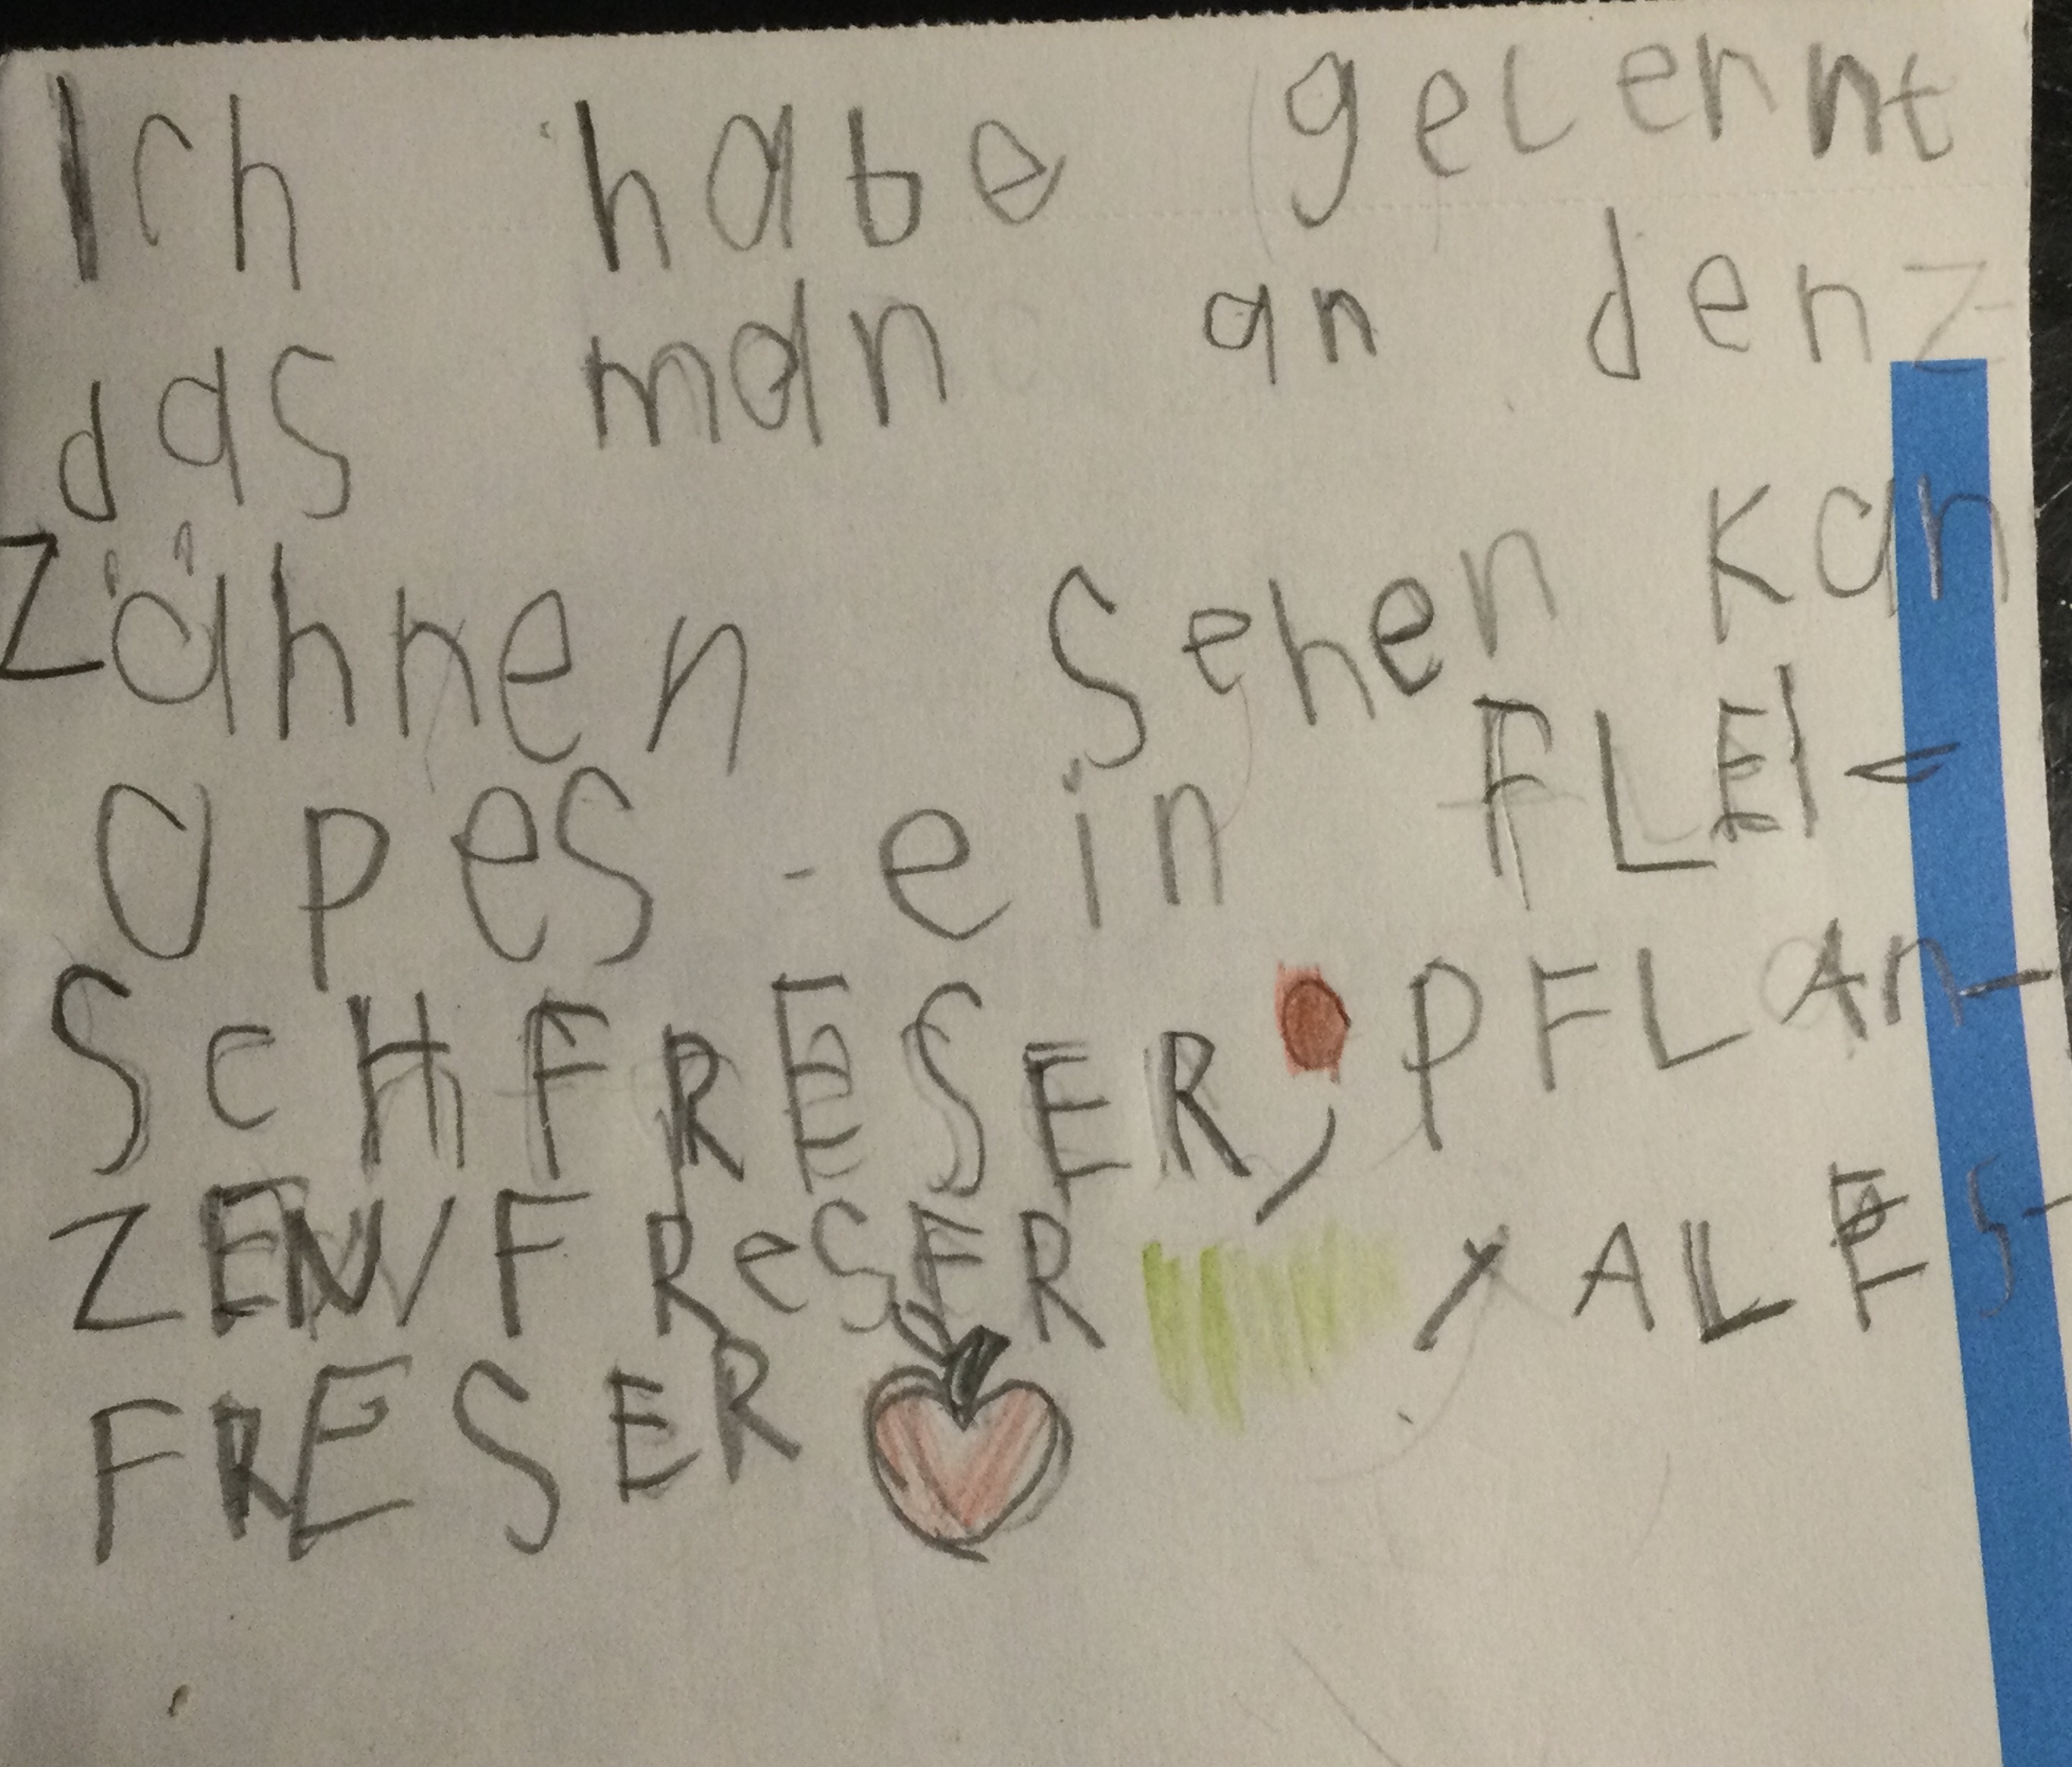 Ich habe gelernt
das man an den Z
Zähnen sehen kan
op es ein FLEI-
ScHFRESER, PFLAn-
ZENFReSER, ALES-
FRESER